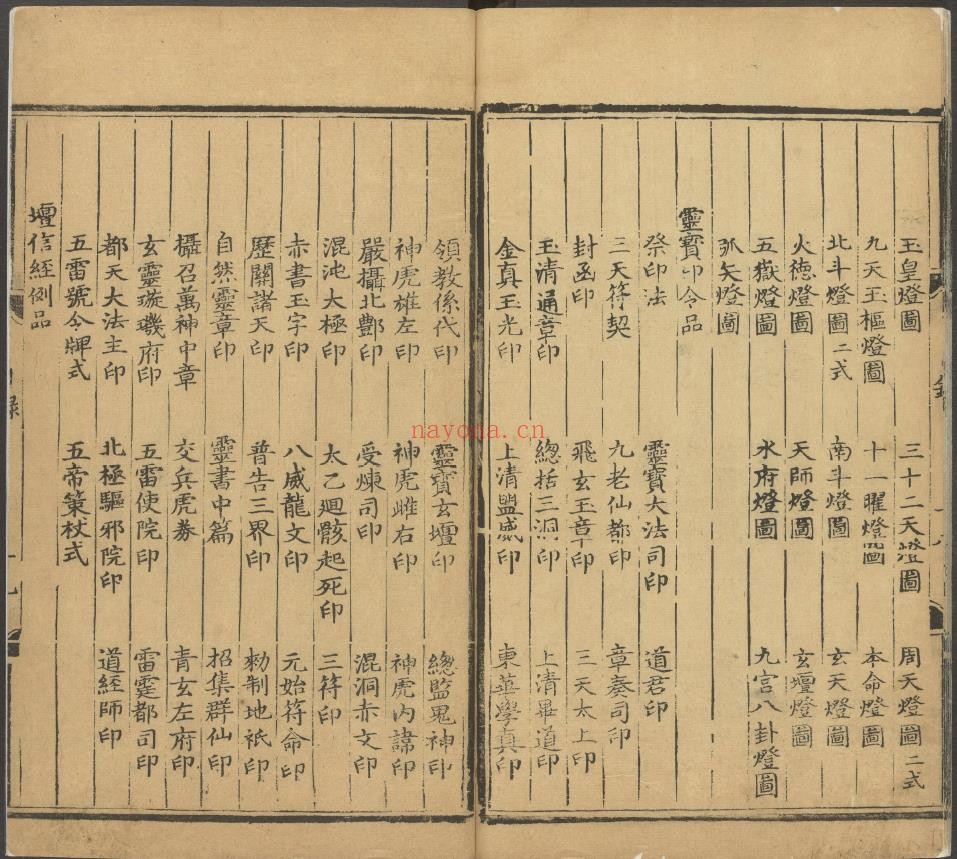 玉皇燈圖 三十二天燈圖 周天燈圖二式
九天玉樞燈圖 十一曜燈圖 本命燈圖
北斗燈圖二式 南斗燈圖 玄天燈圖
火德燈圖 天師燈圖 玄壇燈圖
五嶽燈圖 水府燈圖 九宮八卦燈圖
弧矢燈圖
靈寶印令品
祭印法 靈寶大法司印 道君印
三天符契 九老仙都印 章奏司印
封函印 飛玄玉章印 三天太上印
玉清通章印 總括三洞印 上清畢道印
金真玉光印 上清盟威印 東華學真印
領教係代印 靈寶玄壇印 總監鬼神印
神虎雄左印 神虎雌右印 神虎內諱印
嚴攝北酆印 受煉司印 混洞赤文印
混沌太極印 太乙迴骸起死印 三符印
赤書玉字印 八威龍文印 元始符命印
歷關諸天印 普告三界印 勑制地祇印
自然靈章印 靈書中篇 招集群仙印
攝召萬神中章 交兵虎券 青玄左府印
玄靈璇璣府印 五雷使院印 雷霆都司印
都天大法主印 北極驅邪院印 道經師印
五雷號令牌式 五帝策杖式
壇信經例品
nayona.cn